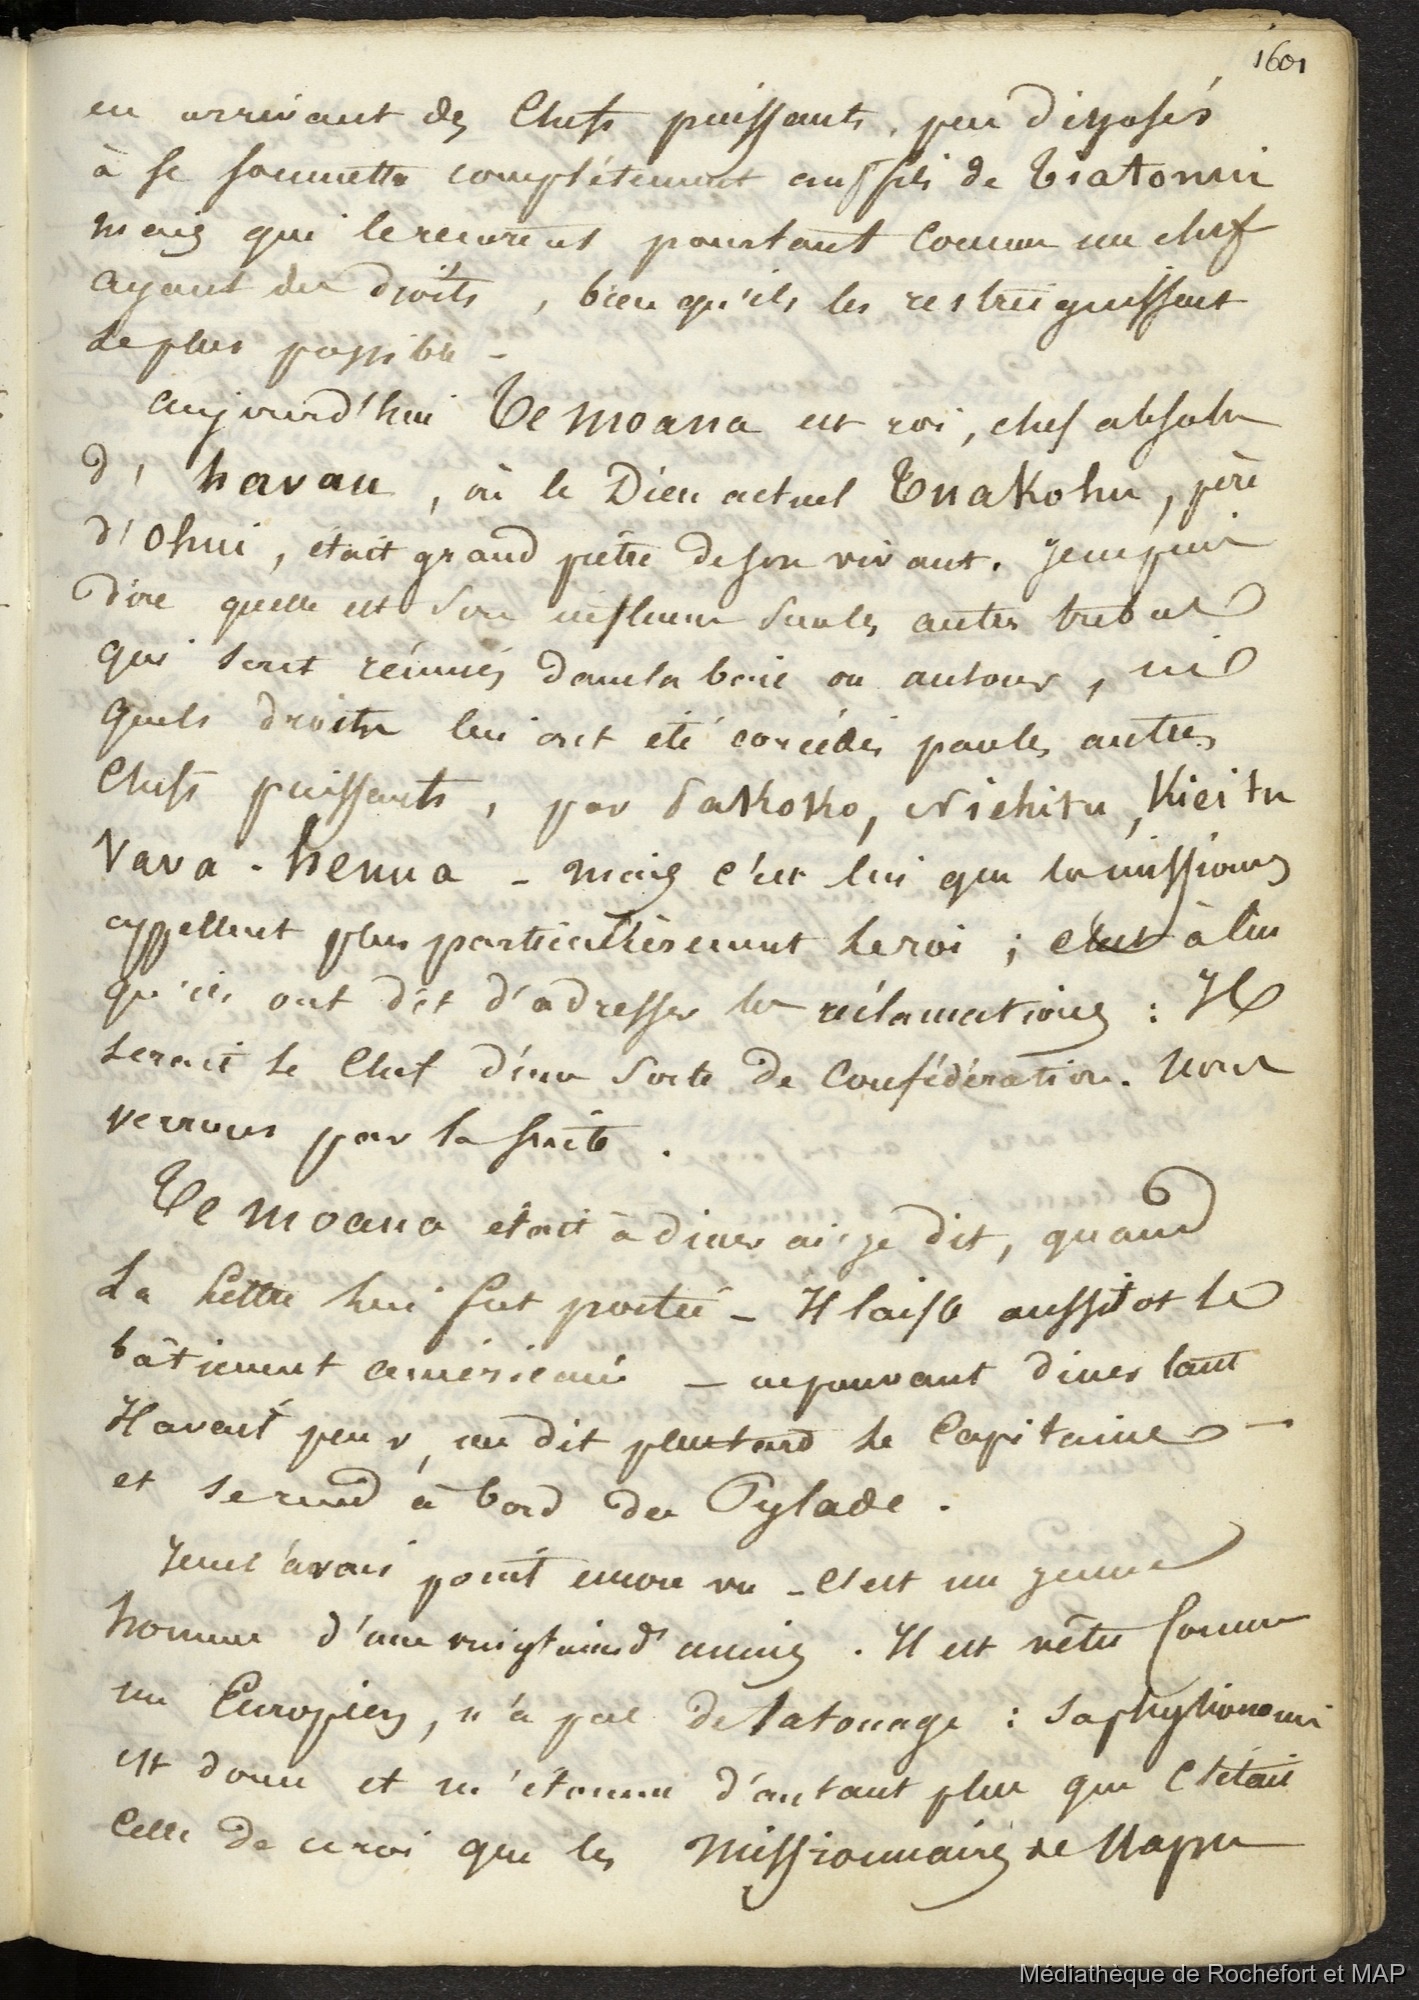 1601
en arrivant des Chefs puissants, peu disposés
à se soumettre complétement au fils de Tiatonui
mais qui le reçurent pourtant comme un chef
ayant des droits, bien qu'ils les restreignissent
le plus possible -
aujourd'hui Te moana est roi, chef absolu
d' havau, où le Dieu actuel Tuakohu, père
d'Ohui, était grand prêtre de son vivant. Je ne puis
dire quelle est son influence sur les autres tribus
qui sont réunies dans la baie ou autour, ni
quels droits lui ont été concédés par les autres
Chefs puissants, par Pakoko, Niehitu, Kieitu
Vava-henua - mais c'est lui que les missions
appellent plus particulièrement le roi ; c'est à lui
qu'ils ont dit d'adresser les réclamations : Il
serait le Chef d'une sorte de Confédération. Nous
verrons par la suite.
Te moana était à diner ai-je dit, quand
La lettre lui fut portée - Il laisse aussitot le
bâtiment américain - ne pouvant diner tant
Il avait peur, me dit plus tard le Capitaine -
et se rend à bord du Pylade.
Je ne l'avais point encore vu - C'est un jeune
homme d'une vingtaine d'années. Il est vêtu comme
un Européen, n'a pas de tatouage : sa physionomie
est douce et m'étonna d'autant plus que C'était
Celle de ce roi que les Missionnaires de Uapu
Médiathèque de Rochefort et MAP